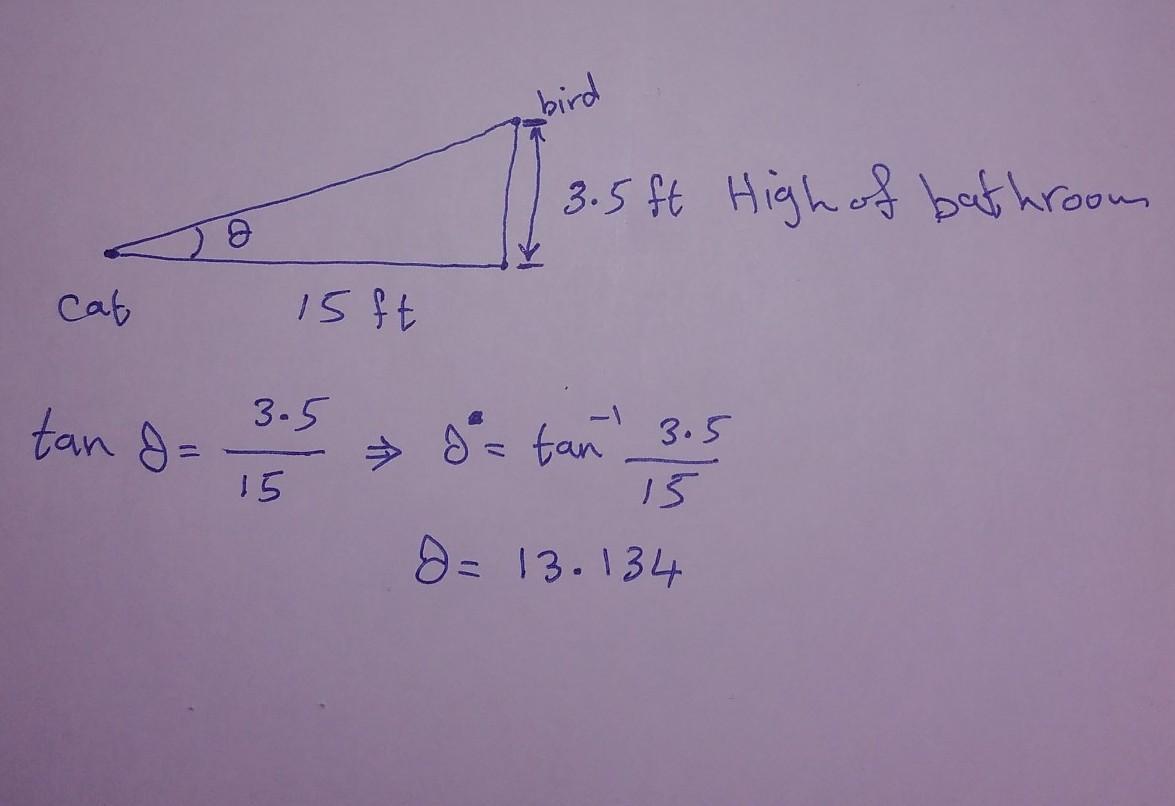 bird
3.5 ft High of bathroom
θ
Cat
15 ft
tan θ = 3.5/15 ⇒ θ = tan⁻¹ 3.5/15
θ = 13.134